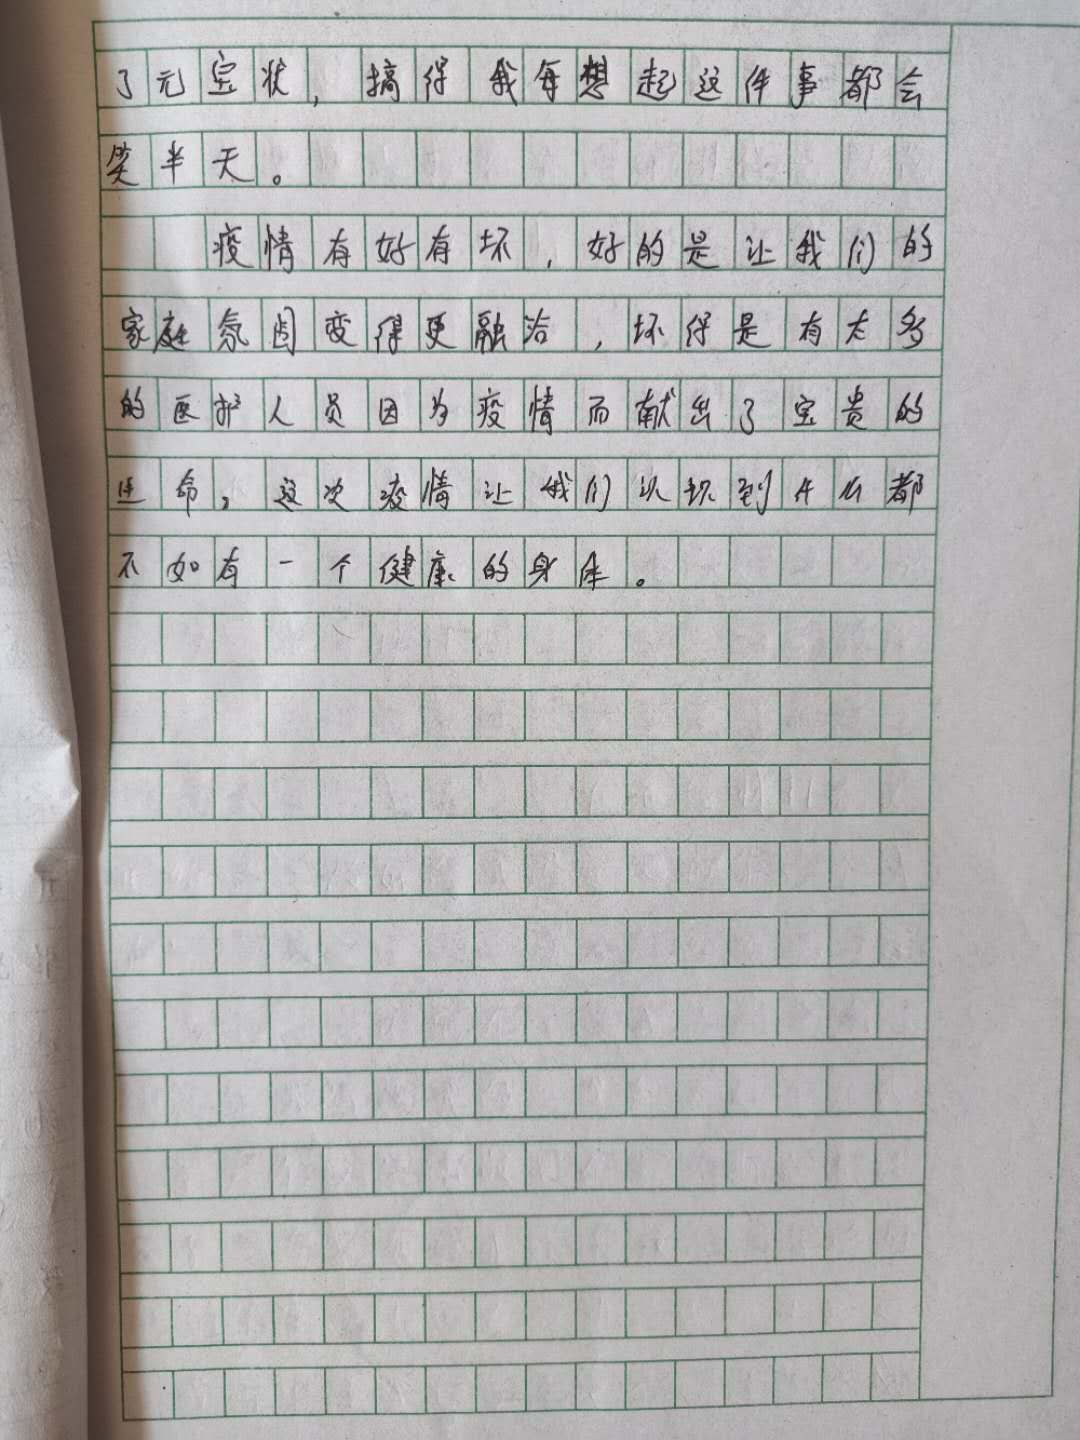 了元宝状，搞得我每想起这件事都会
笑半天。
疫情有好有坏，好的是让我们的
家庭氛围变得更融洽，坏得是有太多
的医护人员因为疫情而献出了宝贵的
生命。这次疫情让我们认识到什么都
不如有一个健康的身体。